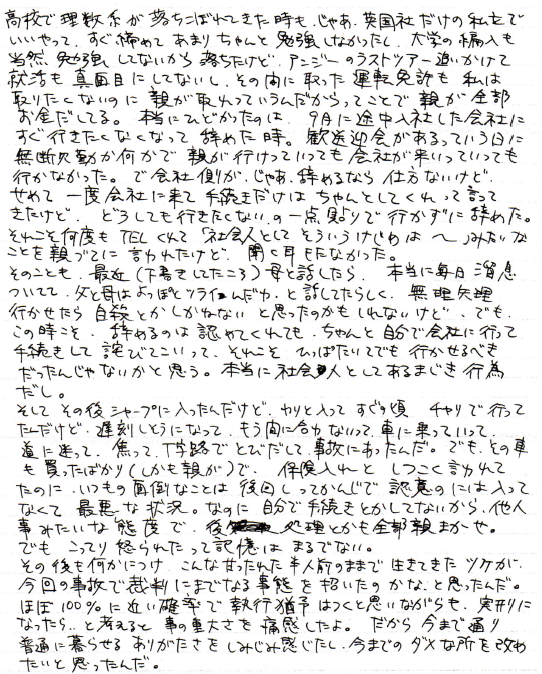 高校で理数系が落ちこぼれてきた時も、じゃあ、英国社だけの私立で
いいやって、すぐ締めてあまりちゃんと勉強しなかったし、大学の編入も
当然、勉強してないから落ちたけど、アンジーのラストツアー追いかけて
就活も真面目にしてないし、その間に取った運転免許も私は
取りたくないのに親が取れっていうんだからってことで親が全部
お金だしてる。本当にひどかったのは、9月に途中入社した会社に
すぐ行きたくなくなって辞めた時。歓送迎会があるっていう日に
無断欠勤か何かで親が行けっていっても会社が来いっていっても
行かなかった。で会社側が、じゃあ、辞めるなら仕方ないけど、
せめて一度会社に来て手続きだけはちゃんとしてくれって言って
きたけど、どうしても行きたくない、の一点貼りで行かずに辞めた。
それこそ何度もTELくれて「社会人としてそういうけじめは〜」みたいな
ことを親づてに言われたけど、聞く耳もたなかった。
そのことも、最近(下書きしてたころ)母と話したら、本当に毎日消息
ついてて、父と母はよっぽどツライんだか、と話してたらしく、無理矢理
行かせたら自殺とかしかねないと思ったのかもしれないけど、でも、
この時こそ、辞めるのは認めてくれても、ちゃんと自分で会社に行って
手続きして詫びてこいって、それこそひっぱたいてでも行かせるべき
だったんじゃないかと思う。本当に社会人としてあるまじき行為
だし。
そしてその後シャープに入ったんだけど、わりと入ってすぐの頃 チャリで行って
たんだけど、遅刻しそうになって、もう間に合わないって、車に乗っていって、
道に迷って、焦って、T字路でとびだして、事故にあったんだ。でも、その車
も買ったばかり(しかも親が)で、保険入れとしつこく言われて
たのに、いつもの面倒なことは後回しってかんじで認意のには入って
なくて最悪な状況。なのに自分で手続きとかしてないから、他人
事みたいな態度で、後処理とかも全部親まかせ。
でもこってり怒られたって記憶はまるでない。
その後も何かにつけ、こんな甘ったれた半人前のままで生きてきたツケが、
今回の事故で裁判にまでなる事態を招いたのかな、と思ったんだ。
ほぼ100%に近い確率で執行猶予はつくと思いながらも、実刑に
なったら、と考えると事の重大さを痛感したよ。だから今まで通り
普通に暮らせるありがたさをしみじみ感じたし、今までのダメな所を改め
たいと思ったんだ。